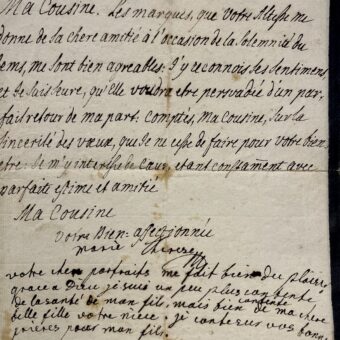 Ma Cousine. Les marques, que votre Altesse me
donne de sa chere amitié à l'occasion de la solemnité du
tems, me sont bien agreables: J'y reconois ses sentimens,
et Je suis seure, qu'Elle voudra etre persuadée d'un par-
fait retour de ma part: comptés, Ma Cousine, sur la
sincerité des vœux, que Je ne cesse de faire pour votre bien
etre: Je m'y interesse de cœur, etant constamment avec
parfaite estime et amitié
Ma Cousine
Votre Bien: affectionnée
marie Therese
votre cher portraits me fait bien du plaisir
grace a Dieu je suis un peu plus contente
de la santé de mon fils, mais bien contente de ma chere
belle fille votre niece. je conte sur vos bonnes
prieres pour mon fils.